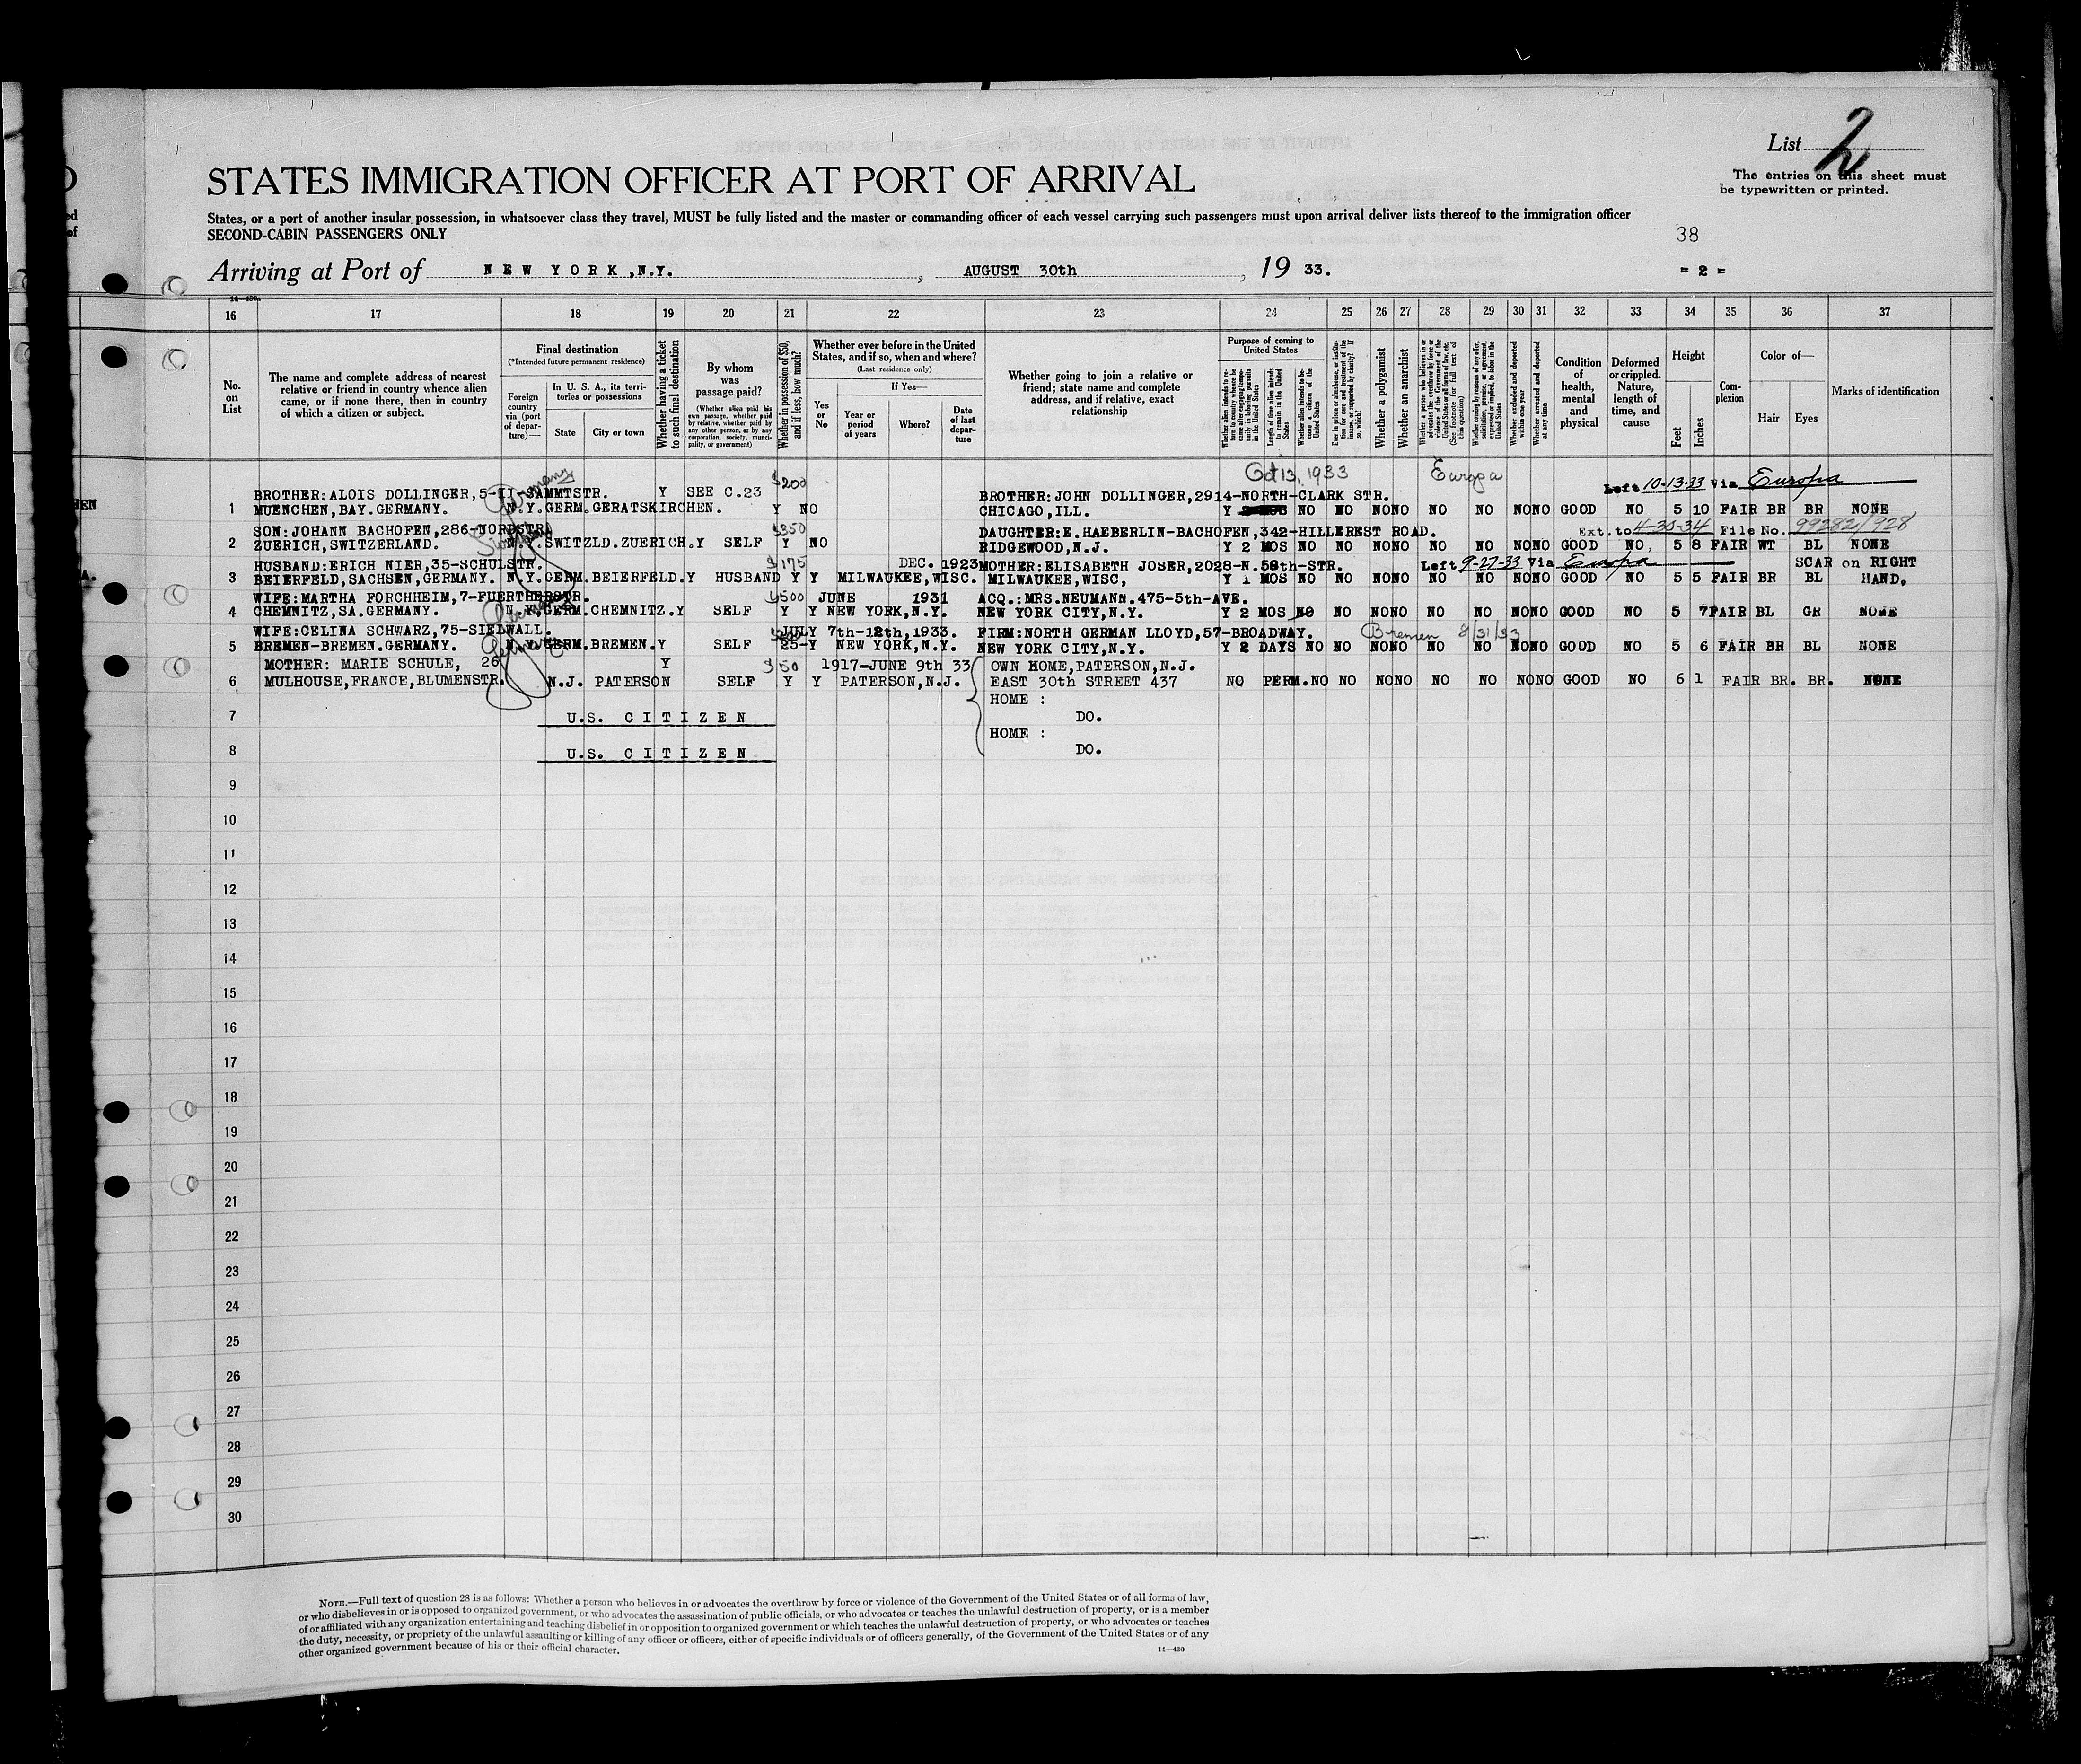 List 2
STATES IMMIGRATION OFFICER AT PORT OF ARRIVAL
The entries on this sheet must
be typewritten or printed.
States, or a port of another insular possession, in whatsoever class they travel, MUST be fully listed and the master or commanding officer of each vessel carrying such passengers must upon arrival deliver lists thereof to the immigration officer
SECOND-CABIN PASSENGERS ONLY
38
Arriving at Port of NEW YORK,N.Y., AUGUST 30th, 19 33.
= 2 =
14—430
16 17 18 19 20 21 22 23 24 25 26 27 28 29 30 31 32 33 34 35 36 37
No.
on
List
The name and complete address of nearest
relative or friend in country whence alien
came, or if none there, then in country
of which a citizen or subject.
Final destination
(*Intended future permanent residence)
Foreign
country
via (port
of depar-
ture)—
In U. S. A., its terri-
tories or possessions
State
City or town
Whether having a ticket
to such final destination
By whom
was
passage paid?
(Whether alien paid his
own passage, whether paid
by relative, whether paid by
any other person, or by any
corporation, society, munici-
pality, or government)
Whether in possession of $50,
and if less, how much?
Whether ever before in the United
States, and if so, when and where?
(Last residence only)
Yes
or
No
If Yes—
Year or
period
of years
Where?
Date
of last
depar-
ture
Whether going to join a relative or
friend; state name and complete
address, and if relative, exact
relationship
Purpose of coming to
United States
Length of time alien intends
to remain in the United
States
Whether alien intends to be-
come a citizen of the
United States
Whether a polygamist
Whether an anarchist
Whether excluded and deported
within one year
Whether arrested and deported
at any time
Condition
of
health,
mental
and
physical
Deformed
or crippled.
Nature,
length of
time, and
cause
Height
Feet
Inches
Com-
plexion
Color of—
Hair
Eyes
Marks of identification
Germany $200 Oct 13, 1933 Europa Left 10-13-33 Via Europa
BROTHER:ALOIS DOLLINGER,5-II-SAMMTSTR. Y SEE C.23 BROTHER:JOHN DOLLINGER,2914-NORTH-CLARK STR.
1 MUENCHEN,BAY.GERMANY. N.Y.GERM.GERATSKIRCHEN. Y NO CHICAGO,ILL. Y NO NO NONO NO NO NONO GOOD NO 5 10 FAIR BR BR NONE
SON:JOHANN BACHOFEN,286-NORDSTR. $350 DAUGHTER:E.HAEBERLIN-BACHOFEN,342-HILLEREST ROAD. Ext. to 4-30-34 File No. 99282/928
2 ZUERICH,SWITZERLAND. N.Y.SWITZLD.ZUERICH.Y SELF Y NO RIDGEWOOD,N.J. Y 2 MOS NO NO NONO NO NO NONO GOOD NO 5 8 FAIR WT BL NONE
HUSBAND:ERICH NIER,35-SCHULSTR. $175 DEC. 1923 MOTHER:ELISABETH JOSER,2028-N.58th-STR. Left 9-27-33 Via Europa SCAR on RIGHT
3 BEIERFELD,SACHSEN,GERMANY. N.Y.GERM.BEIERFELD.Y HUSBAND Y Y MILWAUKEE,WISC. MILWAUKEE,WISC, Y 1 MOS NO NO NONO NO NO NONO GOOD NO 5 5 FAIR BR BL HAND.
WIFE:MARTHA FORCHHEIM,7-FUERTHERSTR. $500 JUNE 1931 ACQ.:MRS.NEUMANN.475-5th-AVE.
4 CHEMNITZ,SA.GERMANY. N.Y.GERM.CHEMNITZ.Y SELF Y Y NEW YORK,N.Y. NEW YORK CITY,N.Y. Y 2 MOS NO NO NONO NO NO NONO GOOD NO 5 7 FAIR BL GR NONE
WIFE:CELINA SCHWARZ,75-SIELWALL. JULY 7th-12th,1933. FIRM:NORTH GERMAN LLOYD,57-BROADWAY. Bremen 8/31/33
5 BREMEN-BREMEN.GERMANY. N.Y.GERM.BREMEN.Y SELF 25-Y NEW YORK,N.Y. NEW YORK CITY,N.Y. Y 2 DAYS NO NO NONO NO NO NONO GOOD NO 5 6 FAIR BR BL NONE
MOTHER: MARIE SCHULE, 26 Y $50 1917-JUNE 9th 33 OWN HOME,PATERSON,N.J.
6 MULHOUSE,FRANCE,BLUMENSTR. N.J. PATERSON SELF Y Y PATERSON,N.J. EAST 30th STREET 437 NO PERM.NO NO NONO NO NO NONO GOOD NO 6 1 FAIR BR. BR. NONE
HOME :
7 U.S. CITIZEN DO.
HOME :
8 U.S. CITIZEN DO.
9
10
11
12
13
14
15
16
17
18
19
20
21
22
23
24
25
26
27
28
29
30
NOTE.—Full text of question 28 is as follows: Whether a person who believes in or advocates the overthrow by force or violence of the Government of the United States or of all forms of law,
or who disbelieves in or is opposed to organized government, or who advocates the assassination of public officials, or who advocates or teaches the unlawful destruction of property, or is a member
of or affiliated with any organization entertaining and teaching disbelief in or opposition to organized government or which teaches the unlawful destruction of property, or who advocates or teaches
the duty, necessity, or propriety of the unlawful assaulting or killing of any officer or officers, either of specific individuals or of officers generally, of the Government of the United States or of any
other organized government because of his or their official character.
14—430